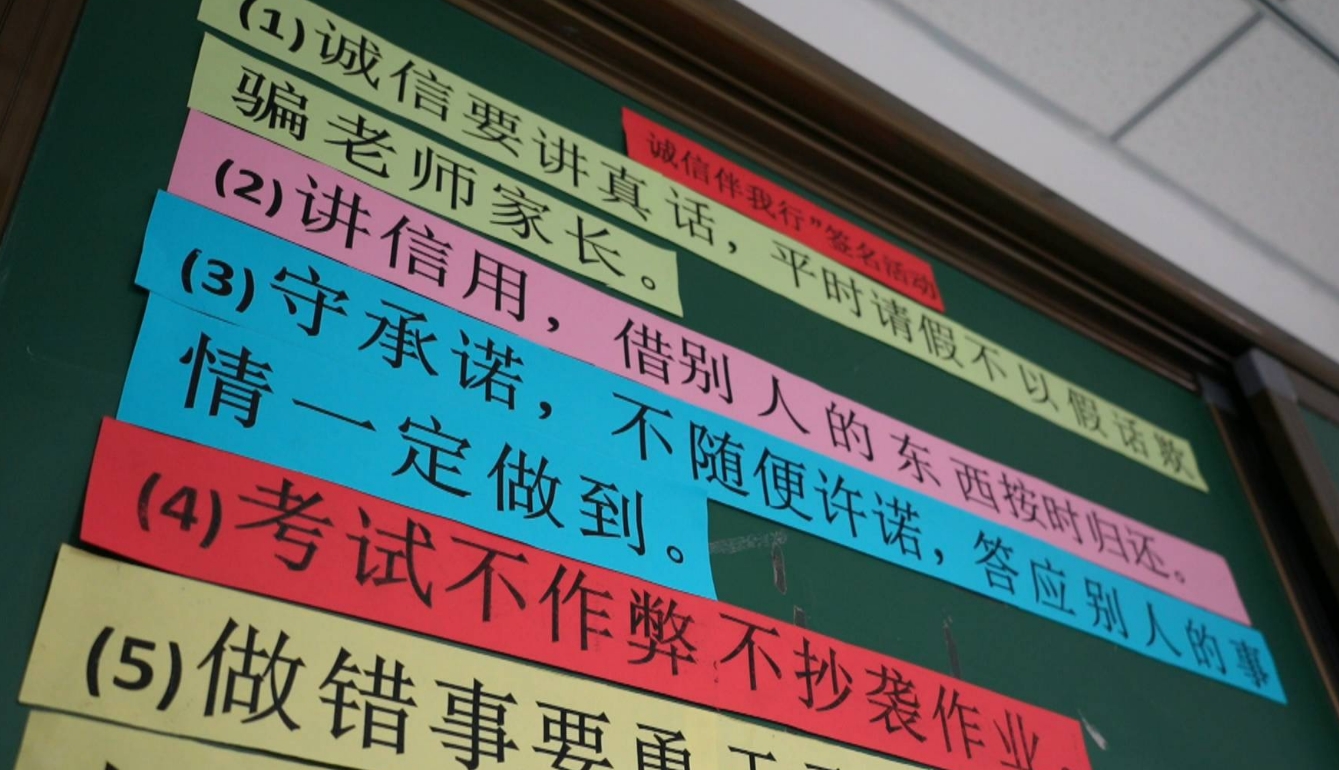 诚信伴我行”签名活动
(1)诚信要讲真话，平时请假不以假话欺
骗老师家长。
(2)讲信用，借别人的东西按时归还。
(3)守承诺，不随便许诺，答应别人的事
情一定做到。
(4)考试不作弊不抄袭作业。
(5)做错事要勇于